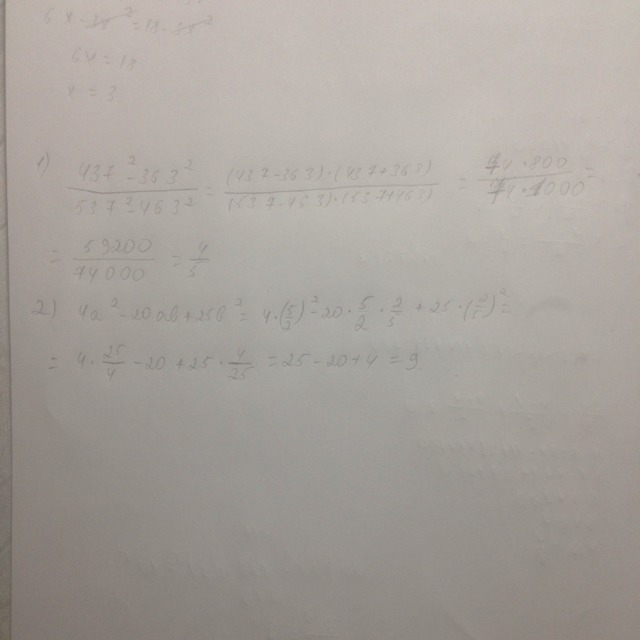 6x - x² = 18 - x²
6x = 18
x = 3
1) (437² - 363²)/(537² - 463²) = ((437 - 363)·(437 + 363))/((537 - 463)·(537 + 463)) = (74·800)/(74·1000) =
= 59200/74000 = 4/5
2) 4a² - 20ab + 25b² = 4·(5/2)² - 20·5/2·2/5 + 25·(2/5)² =
= 4·25/4 - 20 + 25·4/25 = 25 - 20 + 4 = 9